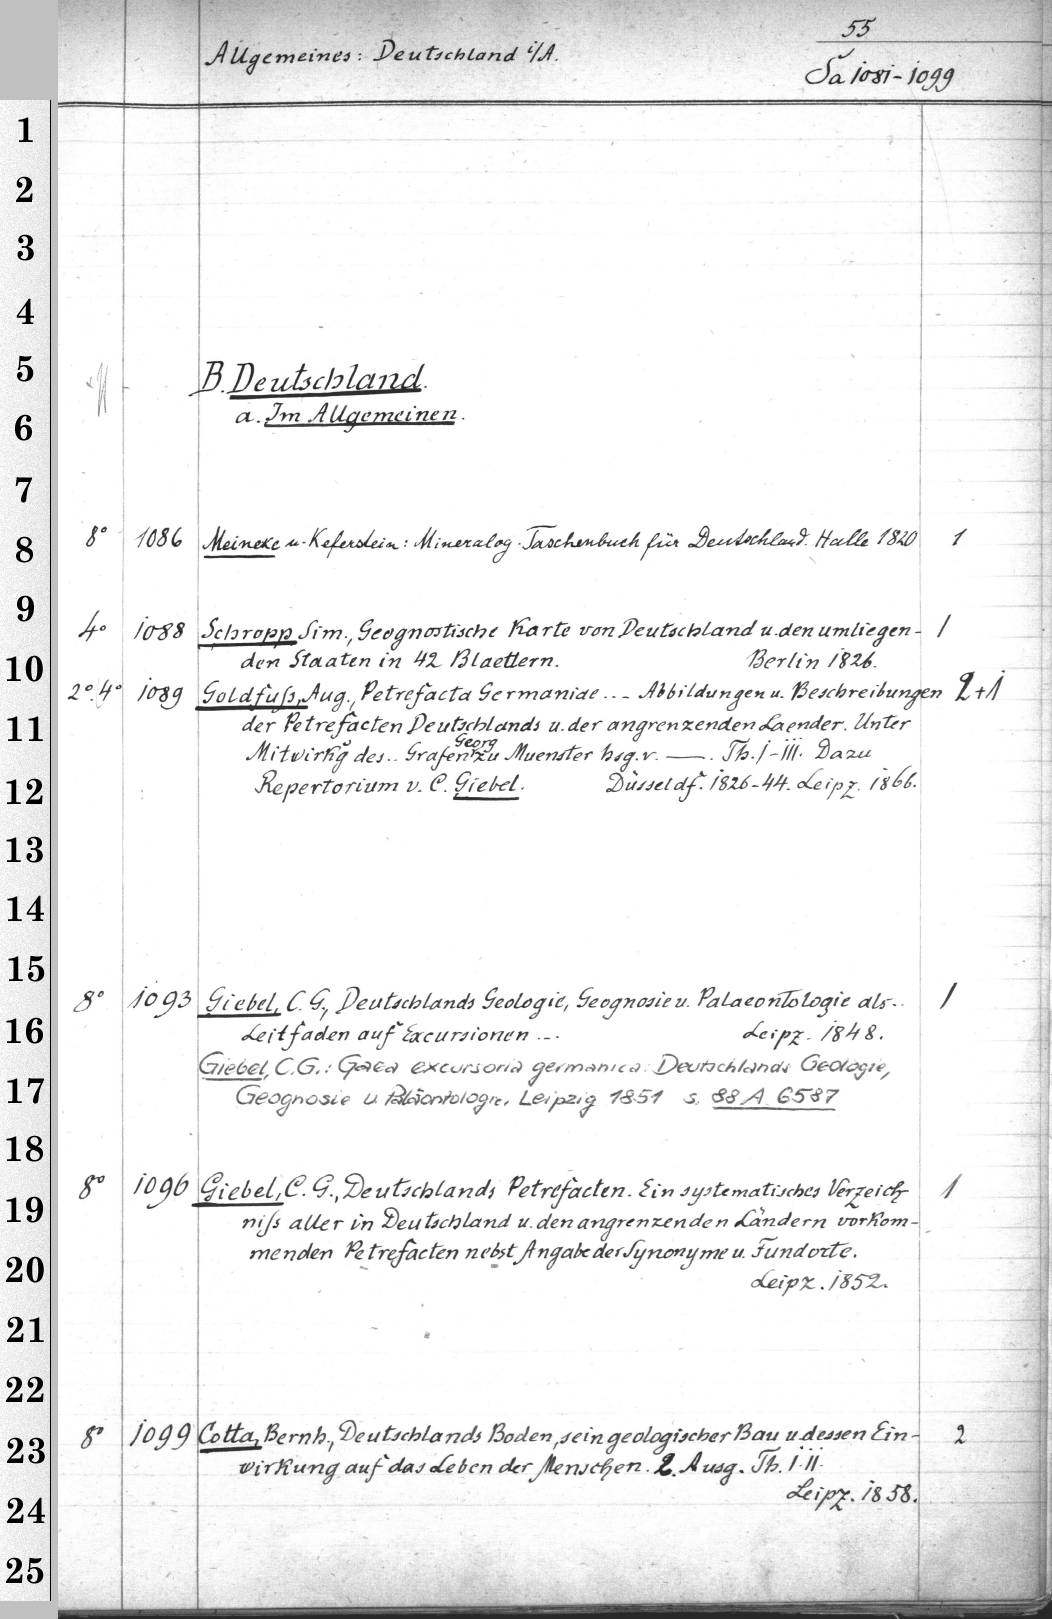 55
Allgemeines: Deutschland i/A.
Sa 1081-1099
1
2
3
4
5
B. Deutschland.
6
a. Im Allgemeinen.
7
8
8° 1086 Meineke u. Keferstein: Mineralog. Taschenbuch für Deutschland. Halle 1820 1
9
4° 1088 Schropp Sim., Geognostische Karte von Deutschland u. den umliegen- 1
10
den Staaten in 42 Blaettern. Berlin 1826.
2°.4° 1089 Goldfuſs, Aug., Petrefacta Germaniae ... Abbildungen u. Beschreibungen 2+1
11
der Petrefacten Deutschlands u. der angrenzenden Laender. Unter
Georg
Mitwirkg des .. Grafen zu Muenster hsg. v. —. Th. I-III. Dazu
12
Repertorium v. C. Giebel. Düsseldf. 1826-44. Leipz. 1866.
13
14
15
8° 1093 Giebel, C. G., Deutschlands Geologie, Geognosie u. Palaeontologie als.. 1
16
Leitfaden auf Excursionen ... Leipz. 1848.
Giebel, C.G.: Gaea excursoria germanica. Deutschlands Geologie,
17
Geognosie u Paläontologie. Leipzig 1851 s. 88 A 6587
18
8° 1096 Giebel, C. G., Deutschlands Petrefacten. Ein systematisches Verzeich- 1
19
niſs aller in Deutschland u. den angrenzenden Ländern vorkom-
menden Petrefacten nebst Angabe der Synonyme u. Fundorte.
20
Leipz. 1852.
21
22
8° 1099 Cotta, Bernh., Deutschlands Boden, sein geologischer Bau u. dessen Ein- 2
23
wirkung auf das Leben der Menschen. 2. Ausg. Th. I.II.
24
Leipz. 1858.
25